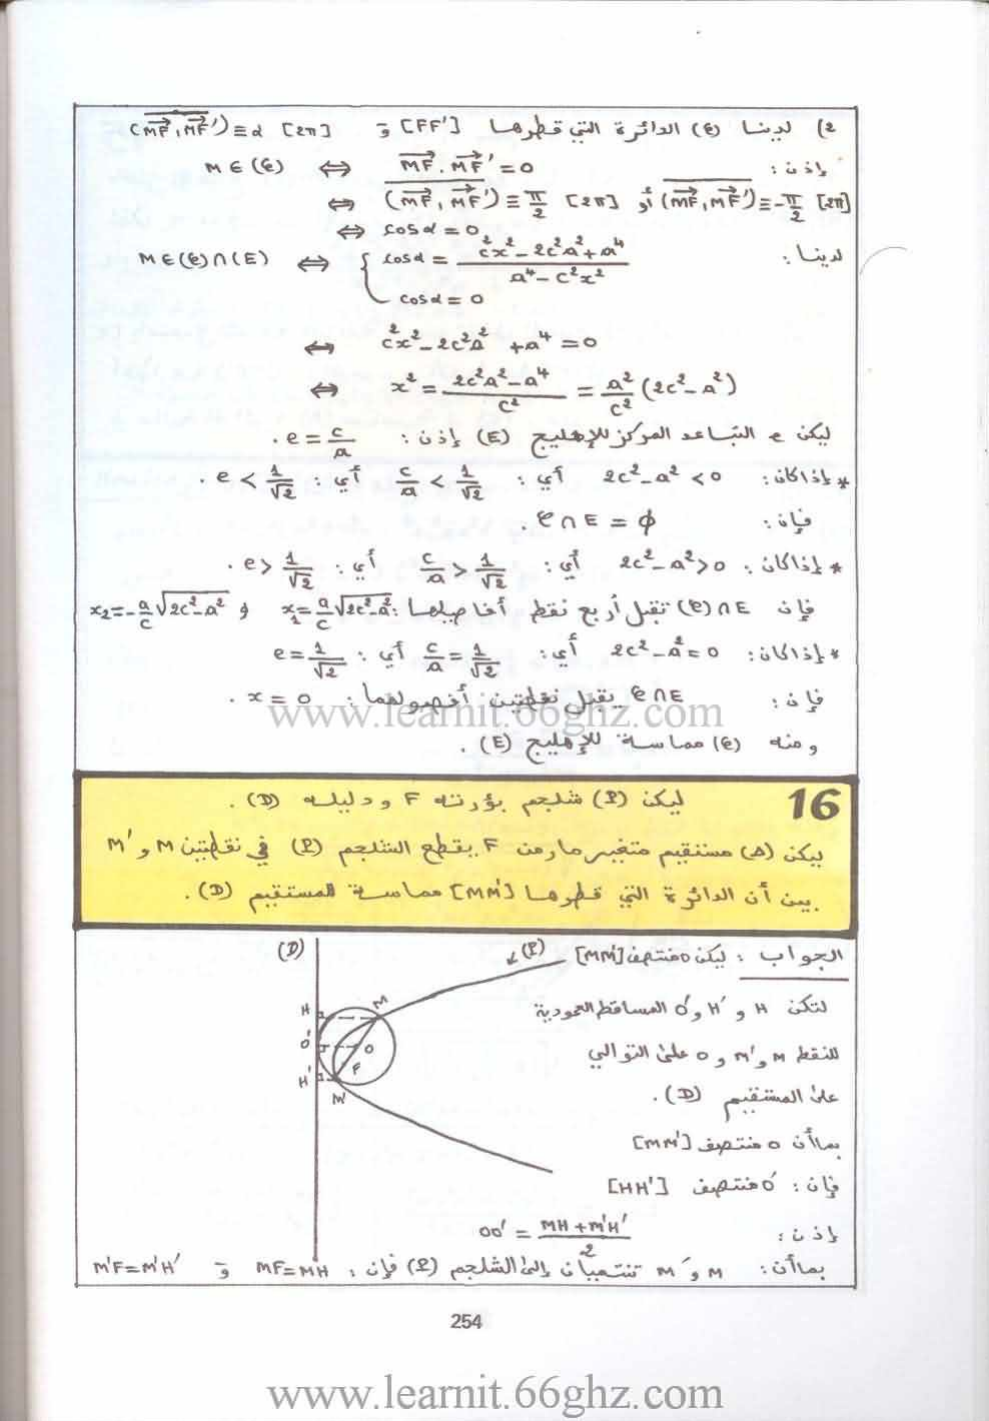 2) لدينا (C) الدائرة التي قطرها [FF'] و (MF, MF') ≡ α [2π]
إذن : M ∈ (C) ⇔ MF . MF' = 0
⇔ (MF, MF') ≡ π/2 [2π] أو (MF, MF') ≡ -π/2 [2π]
⇔ cos α = 0
لدينا : M ∈ (C) ∩ (E) ⇔ { cos α = (c²x² - 2c²a² + a⁴)/(a⁴ - c²x²)
cos α = 0
⇔ c²x² - 2c²a² + a⁴ = 0
⇔ x² = (2c²a² - a⁴)/c² = a²/c² (2c² - a²)
ليكن e التباعد المركز للإهليج (E) إذن : e = c/a .
* إذا كان : 2c² - a² < 0 أي : c/a < 1/√2 أي : e < 1/√2 .
فإن : C ∩ E = ϕ .
* إذا كان : 2c² - a² > 0 أي : c/a > 1/√2 أي : e > 1/√2 .
فإن (C) ∩ E تقبل أربع نقط أفاصيلها : x₁ = a/c √(2c² - a²) و x₂ = -a/c √(2c² - a²)
* إذا كان : 2c² - a² = 0 أي : c/a = 1/√2 أي : e = 1/√2
فإن : C ∩ E يقبل نقطتين أفصولهما : x = 0 .
www.learnit.66ghz.com
ومنه (C) مماسة للإهليج (E) .
16
ليكن (P) شلجم بؤرته F ودليله (D) .
ليكن (Δ) مستقيم متغير مار من F يقطع الشلجم (P) في نقطتين M و M'
بين أن الدائرة التي قطرها [MM'] مماسة للمستقيم (D) .
الجواب : ليكن O منتصف [MM']
لتكن H و H' و O' المساقط العمودية
للنقط M و M' و O على التوالي
على المستقيم (D) .
بما أن O منتصف [MM']
فإن : O' منتصف [HH']
إذن : OO' = (MH + M'H')/2
بما أن : M و M' تنتميان إلى الشلجم (P) فإن : MF = MH و M'F = M'H'
(D)
(P)
H
M
O'
O
F
H'
M'
254
www.learnit.66ghz.com